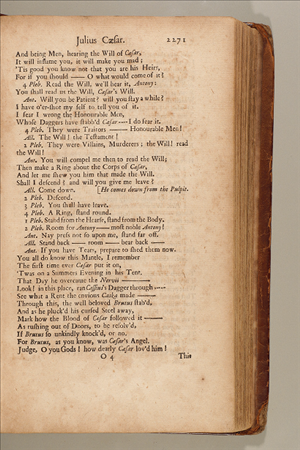 Julius Cæsar. 2271
And being Men, hearing the Will of Cæsar,
It will inflame you, it will make you mad;
'Tis good you know not that you are his Heirs,
For if you should —— O what would come of it!
4 Pleb. Read the Will, we'll hear it, Antony:
You shall read us the Will, Cæsar's Will.
Ant. Will you be Patient? will you stay a while?
I have o'er-shot my self to tell you of it.
I fear I wrong the Honourable Men,
Whose Daggers have stabb'd Cæsar —— I do fear it.
4 Pleb. They were Traitors —— Honourable Men!
All. The Will! the Testament!
2 Pleb. They were Villains, Murderers; the Will! read
the Will!
Ant. You will compel me then to read the Will;
Then make a Ring about the Corps of Cæsar,
And let me shew you him that made the Will.
Shall I descend? and will you give me leave?
All. Come down. [He comes down from the Pulpit.
2 Pleb. Descend.
3 Pleb. You shall have leave.
4 Pleb. A Ring, stand round.
1 Pleb. Stand from the Hearse, stand from the Body.
2 Pleb. Room for Antony —— most noble Antony!
Ant. Nay press not so upon me, stand far off.
All. Stand back —— room —— bear back ——
Ant. If you have Tears, prepare to shed them now.
You all do know this Mantle, I remember
The first time ever Cæsar put it on,
'Twas on a Summers Evening in his Tent,
That Day he overcame the Nervii ——
Look! in this place, ran Cassius's Dagger through ——
See what a Rent the envious Casca made ——
Through this, the well beloved Brutus stab'd,
And as he pluck'd his cursed Steel away,
Mark how the Blood of Cæsar followed it ——
As rushing out of Doors, to be resolv'd,
If Brutus so unkindly knock'd, or no.
For Brutus, as you know, was Cæsar's Angel.
Judge, O you Gods! how dearly Cæsar lov'd him!
O 4 This